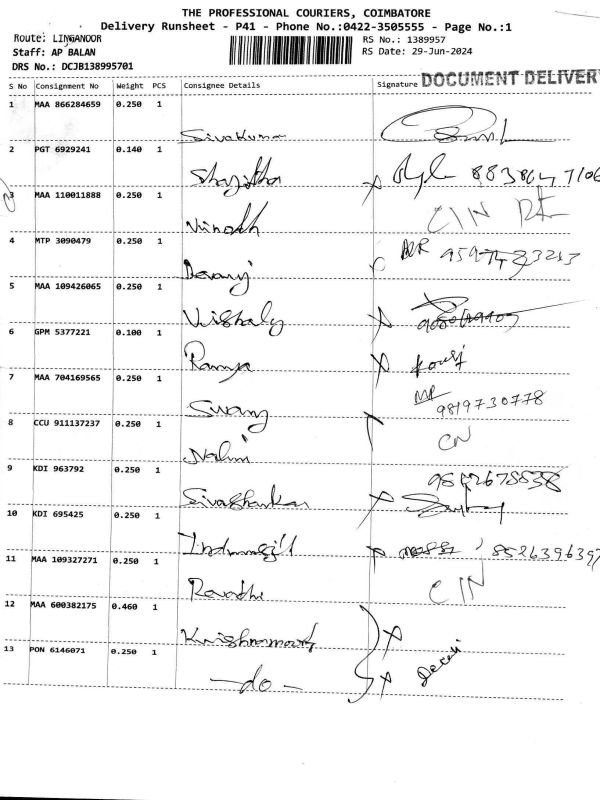 THE PROFESSIONAL COURIERS, COIMBATORE
Delivery Runsheet - P41 - Phone No.:0422-3505555 - Page No.:1
Route: LINGANOOR
RS No.: 1389957
Staff: AP BALAN
RS Date: 29-Jun-2024
DRS No.: DCJB138995701
DOCUMENT DELIVERY
S No Consignment No Weight PCS Consignee Details Signature
1 MAA 866284659 0.250 1
Sivakumar
2 PGT 6929241 0.140 1
Shajitha
3 MAA 110011888 0.250 1
Vinoth CIN
4 MTP 3090479 0.250 1
Devaraj
5 MAA 109426065 0.250 1
Vishaly
6 GPM 5377221 0.100 1
Ramya
7 MAA 704169565 0.250 1
9819730778
8 CCU 911137237 0.250 1
CN
Nalini
9 KDI 963792 0.250 1
Sivashankar
10 KDI 695425 0.250 1
8526396397
11 MAA 109327271 0.250 1
Revathi CIN
12 MAA 600382175 0.460 1
Krishnamoorthy
13 PON 6146071 0.250 1
- do -